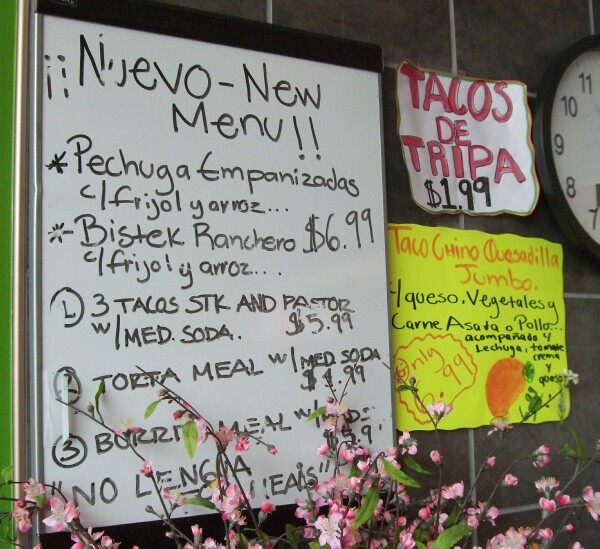 ¡¡NUEVO - NEW
MENU!!
* Pechuga Empanizadas
c/frijol y arroz...
* Bistek Ranchero $6.99
c/frijol y arroz....
1 3 TACOS STK AND PASTOR
w/MED. SODA. $5.99
2 TORTA MEAL w/MED. SODA
$4.99
3 MEAL w/
"NO LENGUA
TACOS
DE
TRIPA
$1.99
Taco Chino Quesadilla
Jumbo.
y queso, Vegetales y
Carne Asada o Pollo...
acompañado y
Lechuga, tomate
crema
y queso
Only
.99
10
11
9
8
7